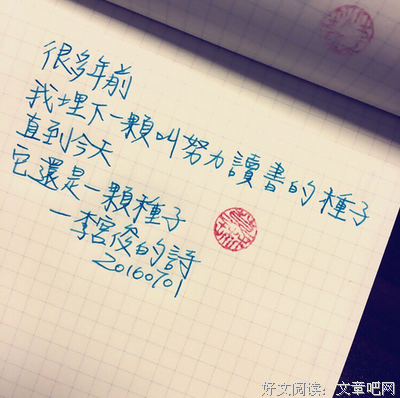 很多年前
我埋下一顆叫努力讀書的種子
直到今天
它還是一顆種子
—李宮俊的詩
20160701
好文阅读：文章吧网